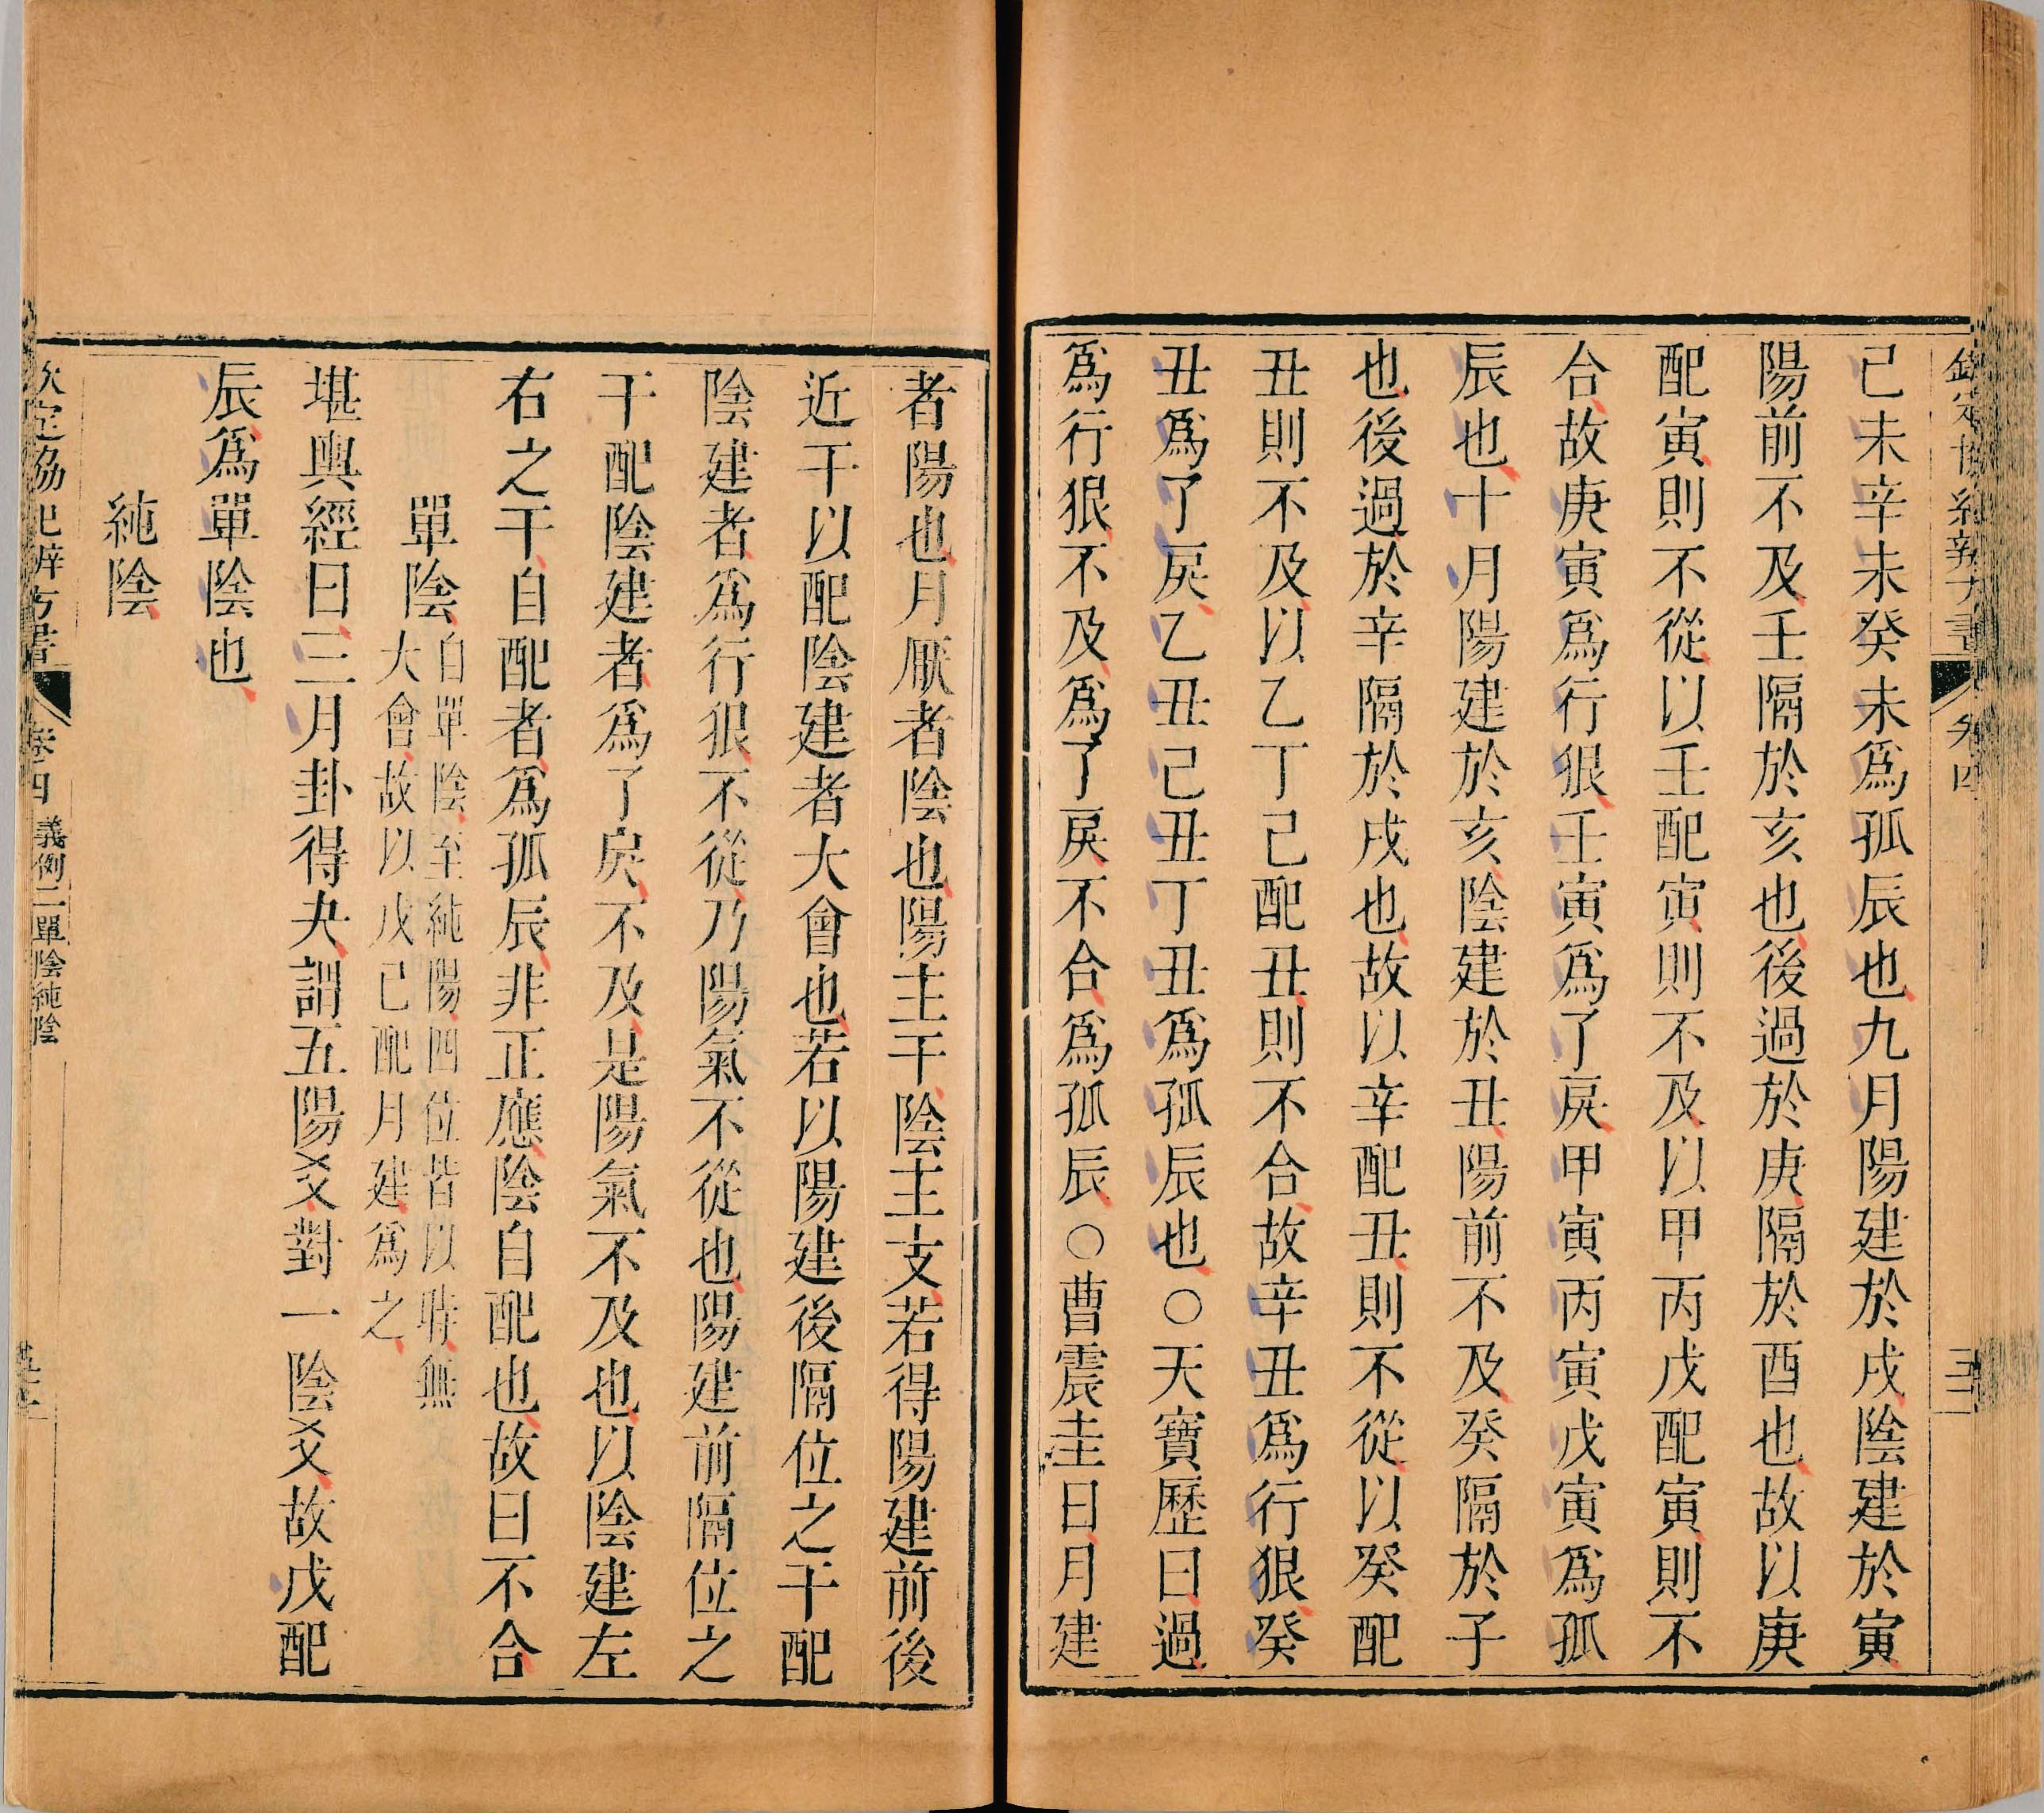 己未辛未癸未爲孤辰也九月陽建於戌陰建於寅
陽前不及壬隔於亥也後過於庚隔於酉也故以庚
配寅則不從以壬配寅則不及以甲丙戊配寅則不
合故庚寅爲行狠壬寅爲了戾甲寅丙寅戊寅爲孤
辰也十月陽建於亥陰建於丑陽前不及癸隔於子
也後過於辛隔於戌也故以辛配丑則不從以癸配
丑則不及以乙丁己配丑則不合故辛丑爲行狠癸
丑爲了戾乙丑己丑丁丑爲孤辰也○天寶歷曰過
爲行狠不及爲了戾不合爲孤辰○曹震圭曰月建
者陽也月厭者陰也陽主干陰主支若得陽建前後
近干以配陰建者大會也若以陽建後隔位之干配
陰建者爲行狠不從乃陽氣不從也陽建前隔位之
干配陰建者爲了戾不及是陽氣不及也以陰建左
右之干自配者爲孤辰非正應陰自配也故曰不合
單陰自單陰至純陽四位皆以時無
大會故以戊己配月建爲之
堪輿經曰三月卦得夬謂五陽爻對一陰爻故戊配
辰爲單陰也
純陰
欽定協紀辨方書 卷四 義例二單陰純陰